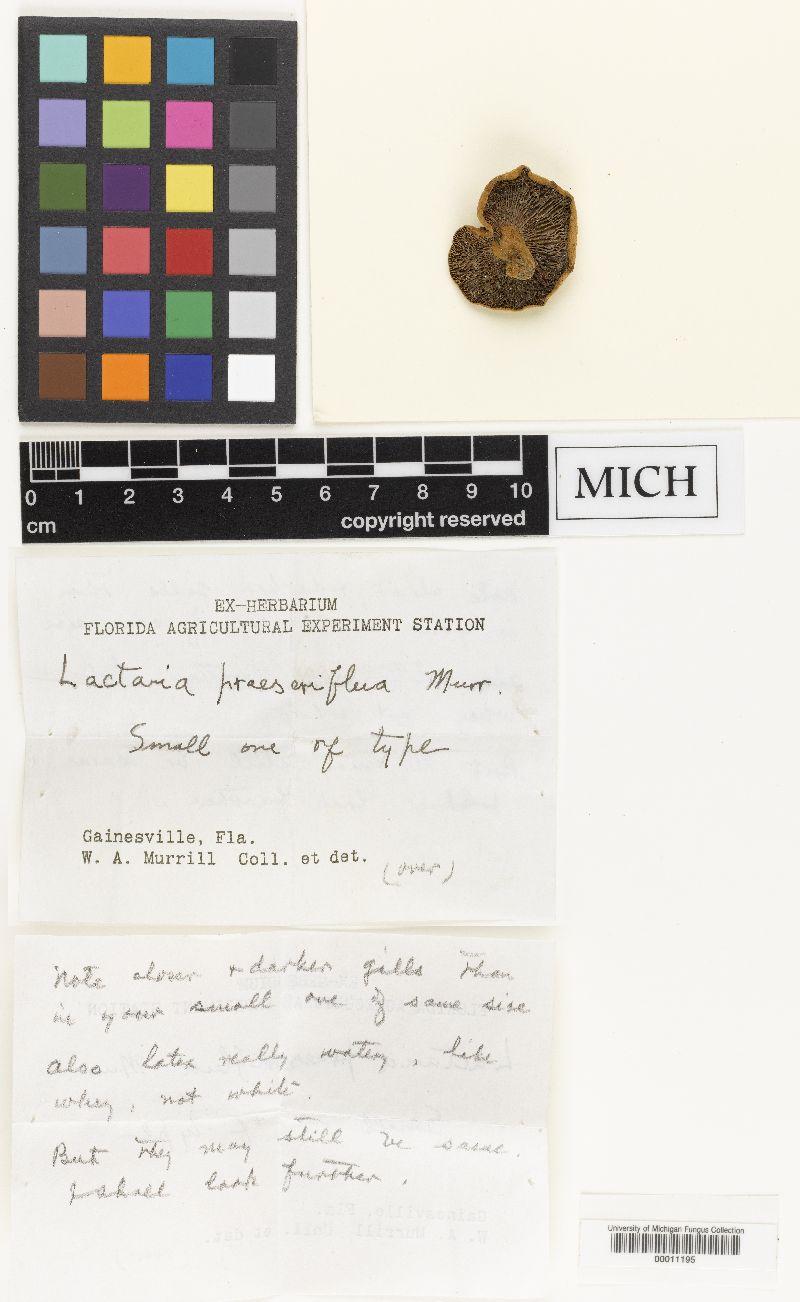 0 1 2 3 4 5 6 7 8 9 10
cm
copyright reserved
MICH
EX-HERBARIUM
FLORIDA AGRICULTURAL EXPERIMENT STATION
Lactaria praeseriflua Murr.
Small one of type
Gainesville, Fla.
W. A. Murrill Coll. et det.
(over)
Note closer & darker gills than
in your small one of same size
also latex really watery, like
whey, not white.
But they may still be same.
I shall look further.
University of Michigan Fungus Collection
00011195